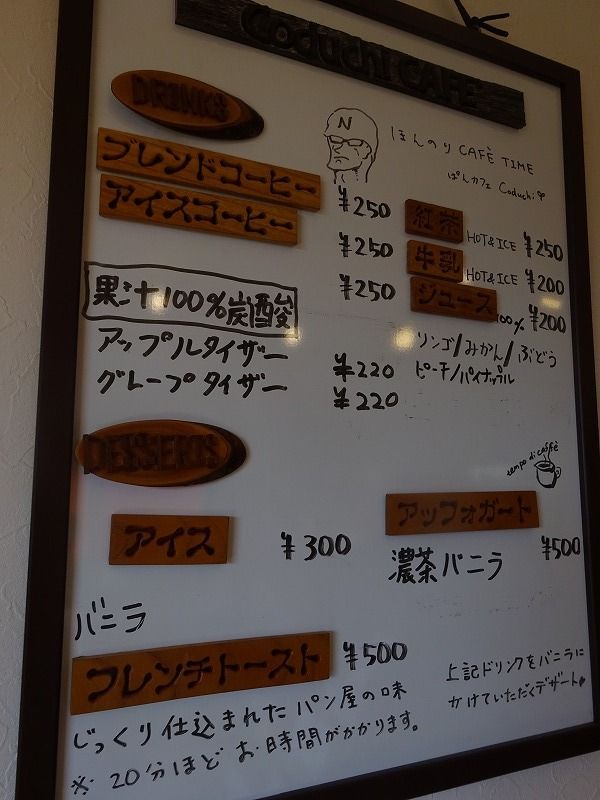 Coduchi CAFE
DRINKS
N
ほんのり CAFÉ TIME
ぱんカフェ Coduchi♡
ブレンドコーヒー ¥250
アイスコーヒー ¥250
¥250
紅茶 HOT&ICE ¥250
牛乳 HOT&ICE ¥200
ジュース 100% ¥200
リンゴ/みかん/ぶどう
ピーチ/パイナップル
果汁100%炭酸
アップルタイザー ¥220
グレープタイザー ¥220
DESSERTS
tempo di caffè
アイス ¥300
バニラ
アッフォガート ¥500
濃茶バニラ
フレンチトースト ¥500
じっくり仕込まれたパン屋の味
※20分ほどお時間がかかります。
上記ドリンクをバニラに
かけていただくデザート♥